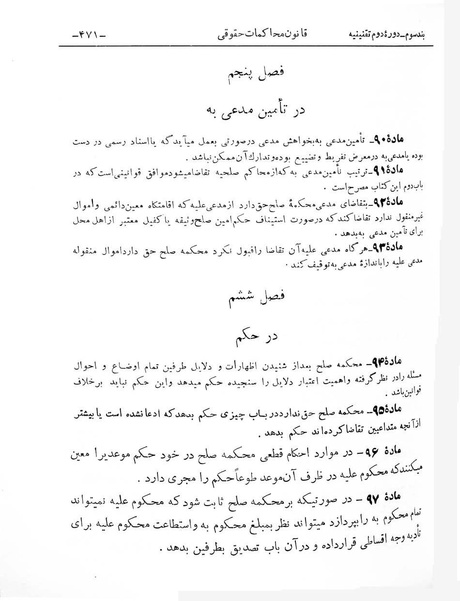 بند سوم ـ دورهٔ دوم تقنینیه قانون محاکمات حقوقی ـ۴۷۱ـ
فصل پنجم
در تأمین مدعی به
مادهٔ ۹۰ـ تأمین مدعی به بخواهش مدعی درصورتی بعمل میآید که یا اسناد رسمی در دست
بوده یا مدعی به در معرض تفریط و تضییع بوده و تدارک آن ممکن نباشد .
مادهٔ ۹۱ـ ترتیب تأمین مدعی به که از محاکم صلحیه تقاضا میشود موافق قوانینی است که در
باب دوم این کتاب مصرح است .
مادهٔ ۹۲ـ بتقاضای مدعی محکمهٔ صلح حق دارد از مدعی علیه که اقامتگاه معین دائمی و أموال
غیر منقول ندارد تقاضا کند که درصورت استیناف حکم امین صلح وثیقه یا کفیل معتبر از اهل محل
برای تأمین مدعی به بدهد .
مادهٔ ۹۳ـ هرگاه مدعی علیه آن تقاضا را قبول نکرد محکمه صلح حق دارد اموال منقوله
مدعی علیه را باندازهٔ مدعی به توقیف کند .
فصل ششم
در حکم
مادهٔ ۹۴ـ محکمه صلح بعد از شنیدن اظهارات و دلایل طرفین تمام اوضاع و احوال
مسئله را در نظر گرفته و اهمیت اعتبار دلایل را سنجیده حکم میدهد و این حکم نباید برخلاف
قوانین باشد .
مادهٔ ۹۵ـ محکمه صلح حق ندارد در باب چیزی حکم بدهد که ادعا نشده است یا بیشتر
از آنچه متداعیین تقاضا کرده‌اند حکم بدهد .
مادهٔ ۹۶ ـ در موارد احکام قطعی محکمه صلح در خود حکم موعدی را معین
میکنند که محکوم علیه در ظرف آن موعد طوعاً حکم را مجری دارد .
مادهٔ ۹۷ ـ در صورتیکه بر محکمه صلح ثابت شود که محکوم علیه نمیتواند
تمام محکوم به را بپردازد میتواند نظر بمبلغ محکوم به و استطاعت محکوم علیه برای
تأدیه وجه اقساطی قرار داده و در آن باب تصدیق بطرفین بدهد .